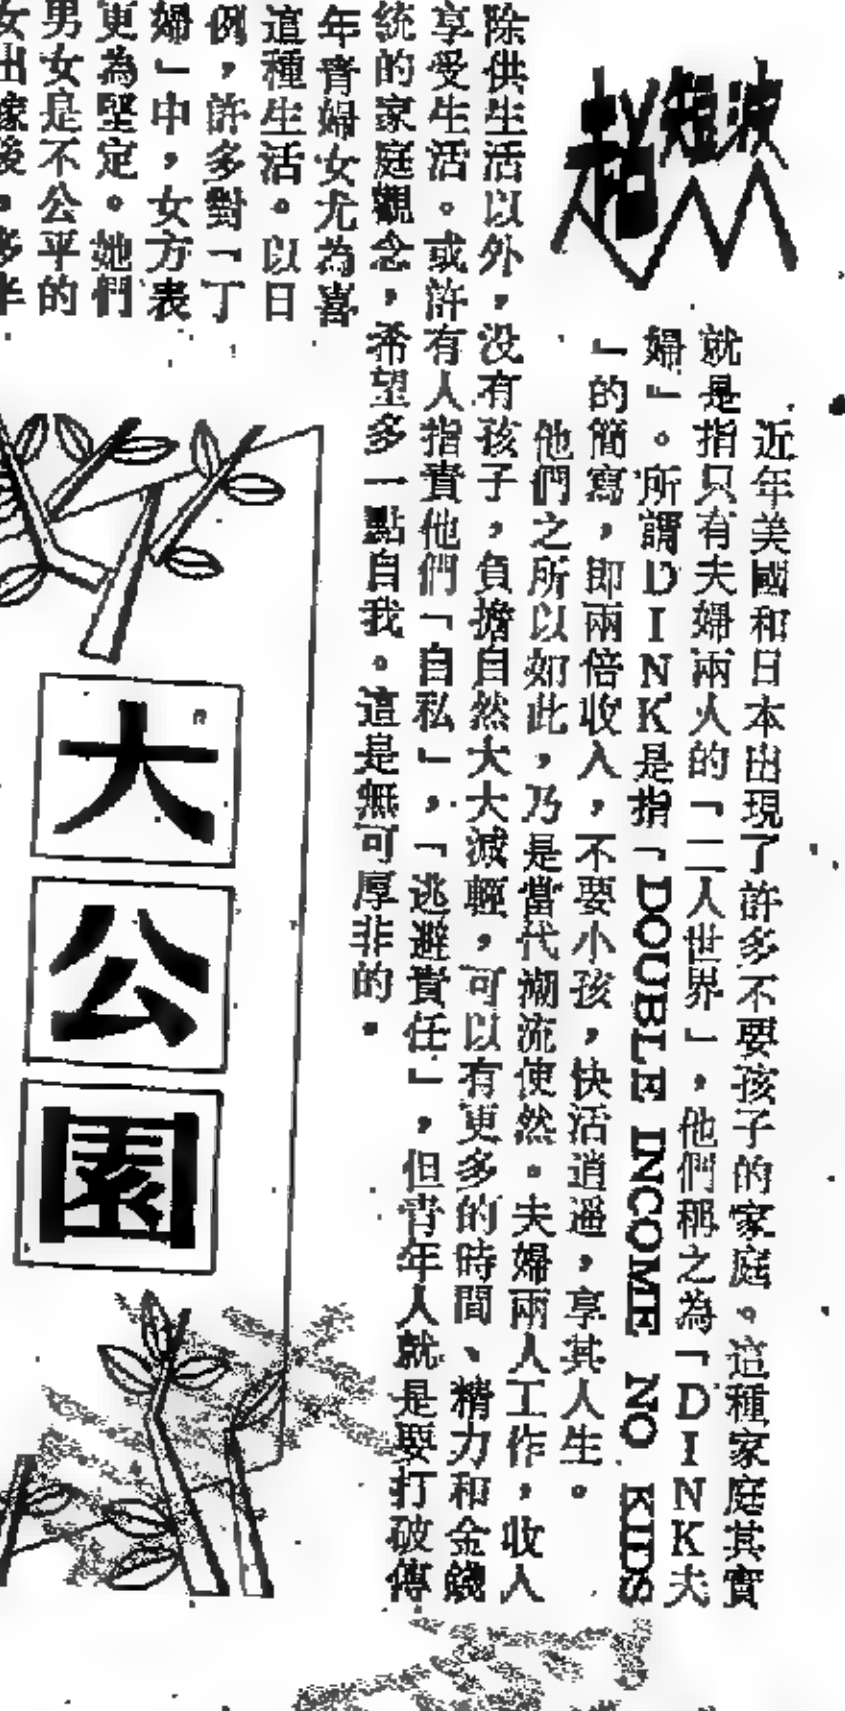 超短波
近年美國和日本出現了許多不要孩子的家庭。這種家庭其實
就是指只有夫婦兩人的「二人世界」，他們稱之為「DINK夫
婦」。所謂DINK是指「DOUBLE INCOME NO KIDS
」的簡寫，即兩倍收入，不要小孩，快活逍遥，享其人生。
他們之所以如此，乃是當代潮流使然。夫婦兩人工作，收入
除供生活以外，没有孩子，負擔自然大大減輕，可以有更多的時間、精力和金錢
享受生活。或許有人指責他們「自私」，「逃避責任」，但青年人就是要打破傳
统的家庭觀念，希望多一點自我。這是無可厚非的。
年青婦女尤為喜
這種生活。以日
例，許多對「丁
婦」中，女方表
更為堅定。她們
男女是不公平的
女出嫁後，多半
大公園